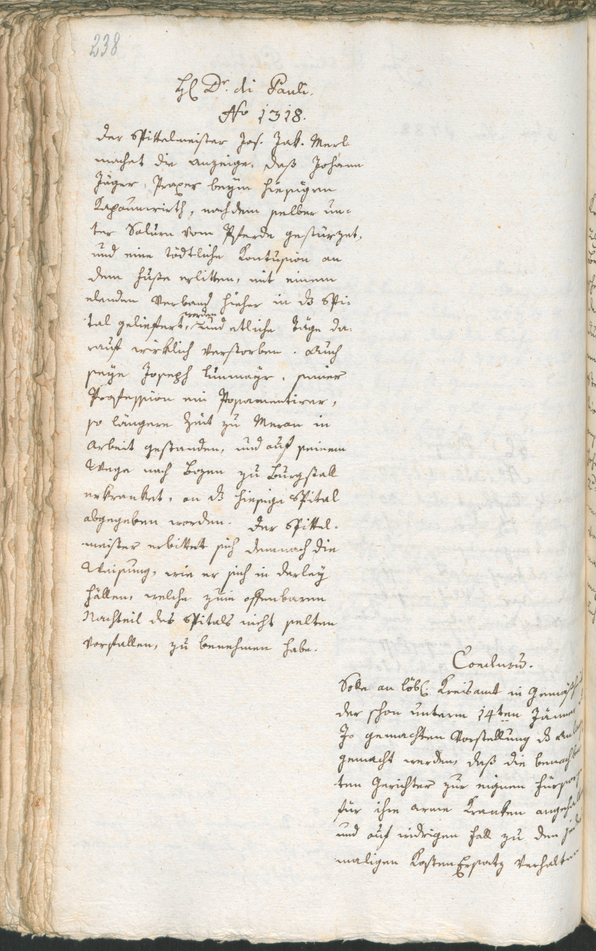 238
H. Dr. di Pauli.
No 1318.
Der Spittelmeister Jos. Jak. Merl
machet die Anzeige, daß Johann
Jäger, beym hiesigen
Kapaunwirth, nachdem selber un-
ter Salurn vom Pferde gestürzet,
und eine tödtliche Kontusion an
dem Hüfte erlitten, mit einem
elenden Verband hieher in ds Spi-
tal geliefert worden, und etliche Täge da-
rauf wirklich verstorben. Auch
seye Joseph Linmayr, seiner
Profession ein Posamentirer,
so längere Zeit zu Meran in
Arbeit gestanden, und auf seinem
Wege nach Bozen zu Burgstall
erkranket, an ds hiesige Spital
abgegeben worden. Der Spittel-
meister erbittet sich demnach die
Weisung, wie er sich in derley
Fällen, welche zum offenbaren
Nachteil des Spitals nicht selten
vorfallen, zu benehmen habe.
Conclusum.
Solle an löbl. Kreisamt in Gemäsh
der schon unterm 14ten Jänner
Js gemachten Vorstellung ds
gemacht werden, daß die benach
ten Gerichter zur eignen Fürsor
für ihre arme Kranken angeh
und auf widrigen Fall zu dem je
maligen Kosten Ersatz verhalten